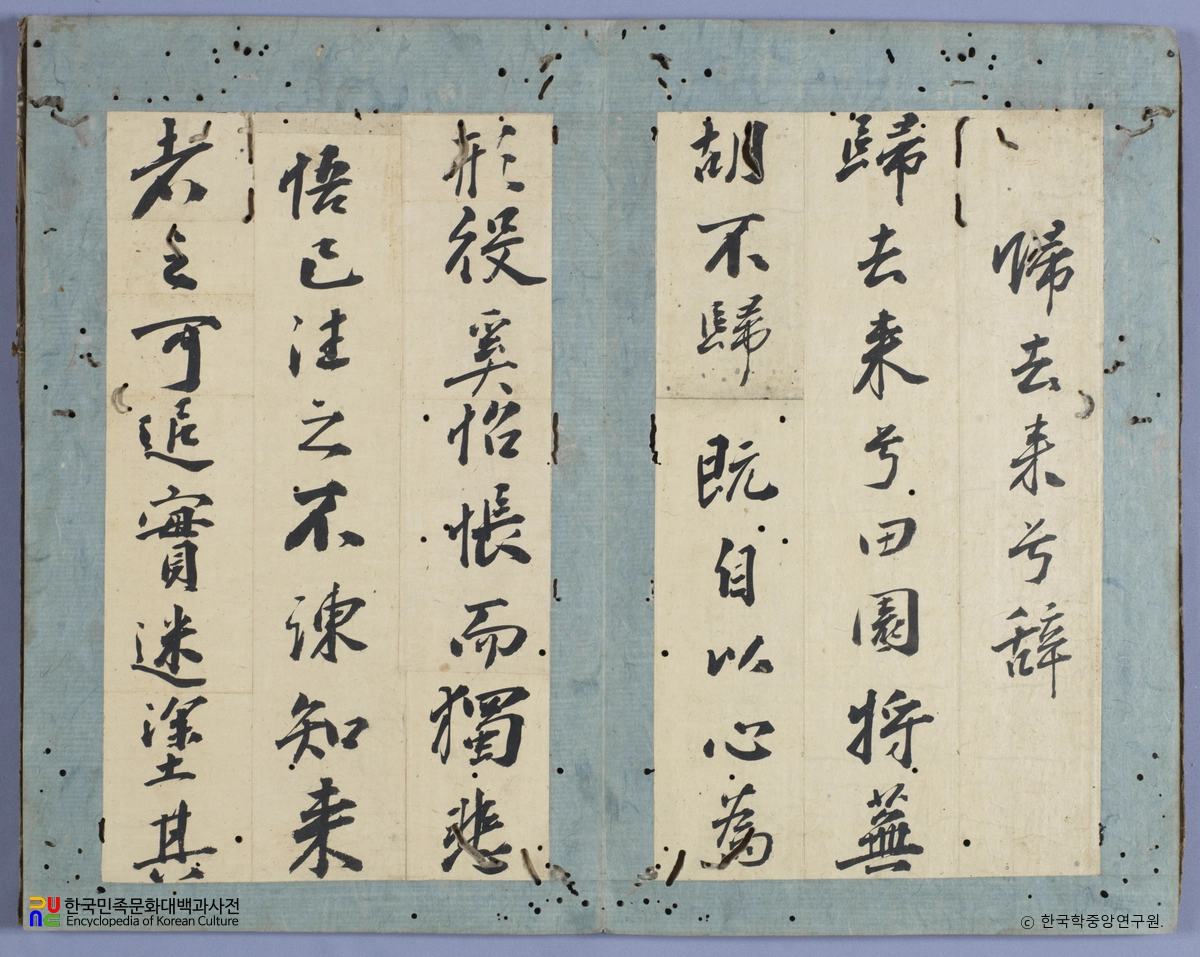 歸去来兮辞
歸去来兮田園将蕪
胡不歸既自以心為
形役奚怊悵而獨悲
悟已往之不諫知来
者之可追實迷塗其
한국민족문화대백과사전
Encyclopedia of Korean Culture
ⓒ 한국학중앙연구원.